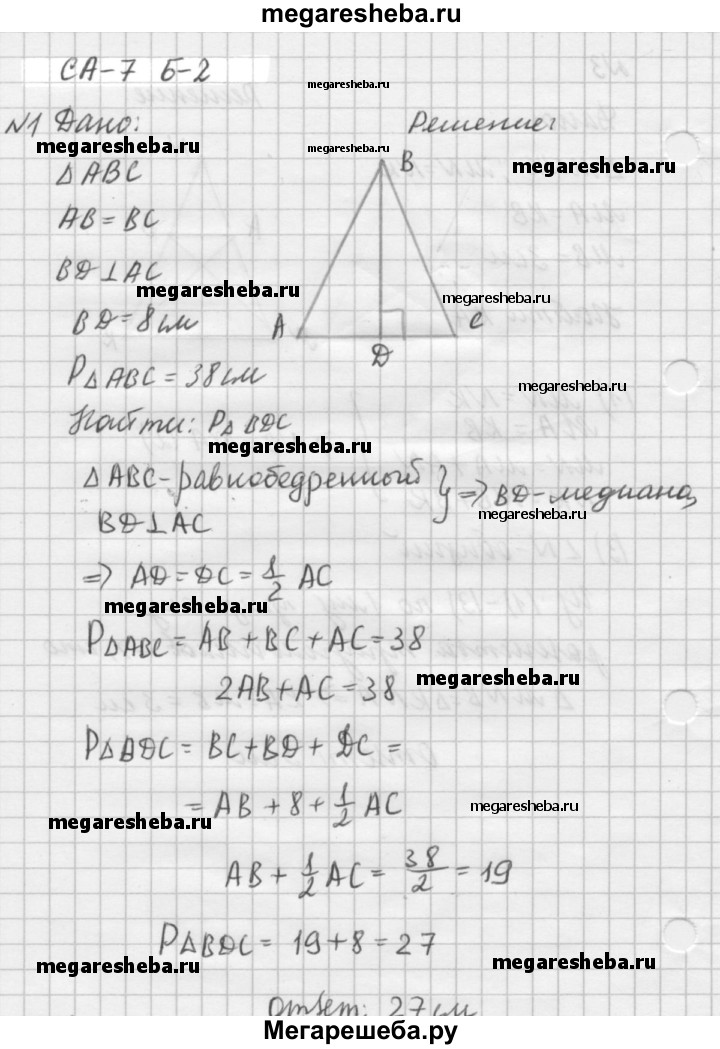 megaresheba.ru
СА-7 Б-2
megaresheba.ru
№1 Дано:
Решение:
megaresheba.ru
megaresheba.ru
megaresheba.ru
Δ ABC
B
AB = BC
BD ⊥ AC
megaresheba.ru
megaresheba.ru
BD = 8 см
A
C
D
PΔ ABC = 38 см
megaresheba.ru
Найти: PΔ BDC
megaresheba.ru
Δ ABC - равнобедренный
BD ⊥ AC
} => BD - медиана,
megaresheba.ru
=> AD = DC = 1/2 AC
megaresheba.ru
PΔABC = AB + BC + AC = 38
2AB + AC = 38
megaresheba.ru
PΔBDC = BC + BD + DC =
= AB + 8 + 1/2 AC
megaresheba.ru
megaresheba.ru
AB + 1/2 AC = 38/2 = 19
PΔBDC = 19 + 8 = 27
megaresheba.ru
megaresheba.ru
Ответ: 27 см
Мегарешеба.ру